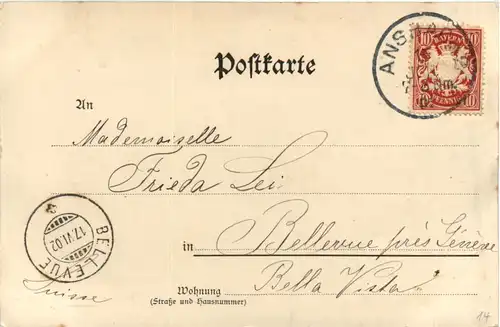 Postkarte
BAYERN
10 10
PFENNIG
ANSBACH
An
Mademoiselle
Frieda Lei
in Bellevue près Genève
Bella Vista
Wohnung
(Straße und Hausnummer)
BELLEVUE
17.VI.02
Suisse
14